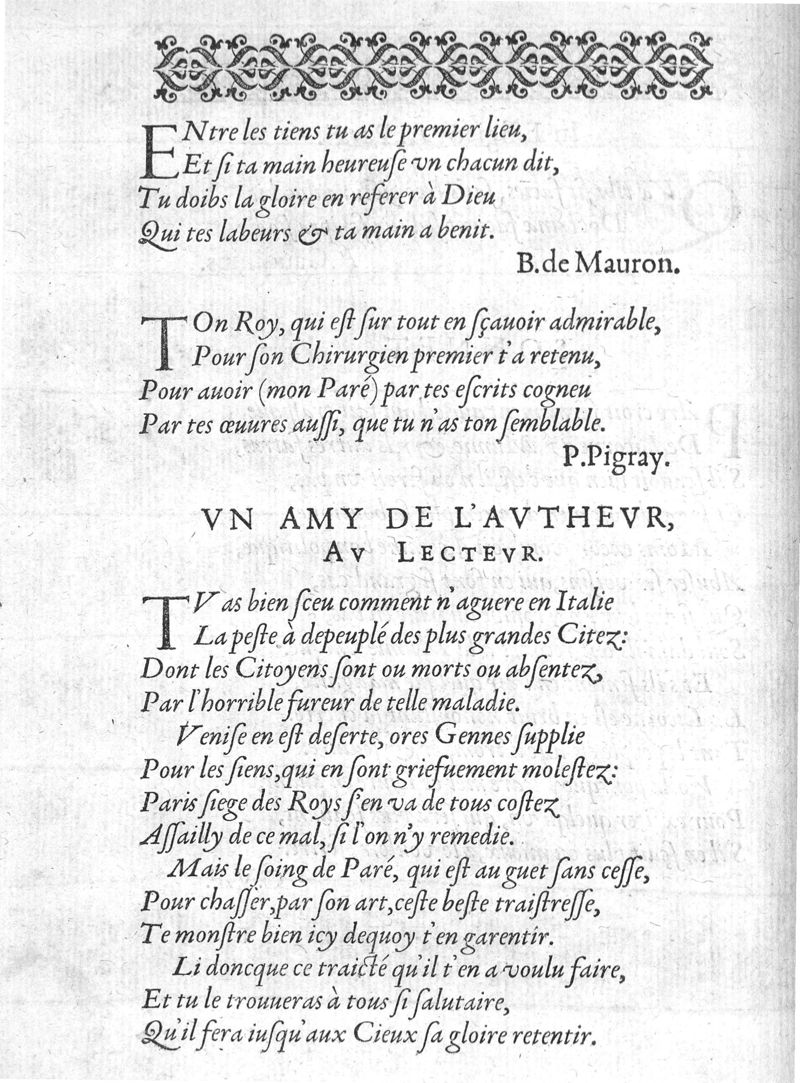 ENtre les tiens tu as le premier lieu,
Et ſi ta main heureuſe vn chacun dit,
Tu doibs la gloire en referer à Dieu
Qui tes labeurs & ta main a benit.
B. de Mauron.
TOn Roy, qui eſt ſur tout en ſçauoir admirable,
Pour ſon Chirurgien premier t'a retenu,
Pour auoir (mon Paré) par tes eſcrits cogneu
Par tes œuures auſſi, que tu n'as ton ſemblable.
P. Pigray.
VN AMY DE L'AVTHEVR,
AV LECTEVR.
TV as bien ſceu comment n'aguere en Italie
La peſte à depeuplé des plus grandes Citez:
Dont les Citoyens ſont ou morts ou abſentez,
Par l'horrible fureur de telle maladie.
Veniſe en eſt deſerte, ores Gennes ſupplie
Pour les ſiens, qui en ſont griefuement moleſtez:
Paris ſiege des Roys ſ'en va de tous coſtez
Aſſailly de ce mal, ſi l'on n'y remedie.
Mais le ſoing de Paré, qui eſt au guet ſans ceſſe,
Pour chaſſer, par ſon art, ceſte beſte traiſtreſſe,
Te monſtre bien icy dequoy t'en garentir.
Li doncque ce traicté qu'il t'en a voulu faire,
Et tu le trouueras à tous ſi ſalutaire,
Qu'il fera iuſqu'aux Cieux ſa gloire retentir.